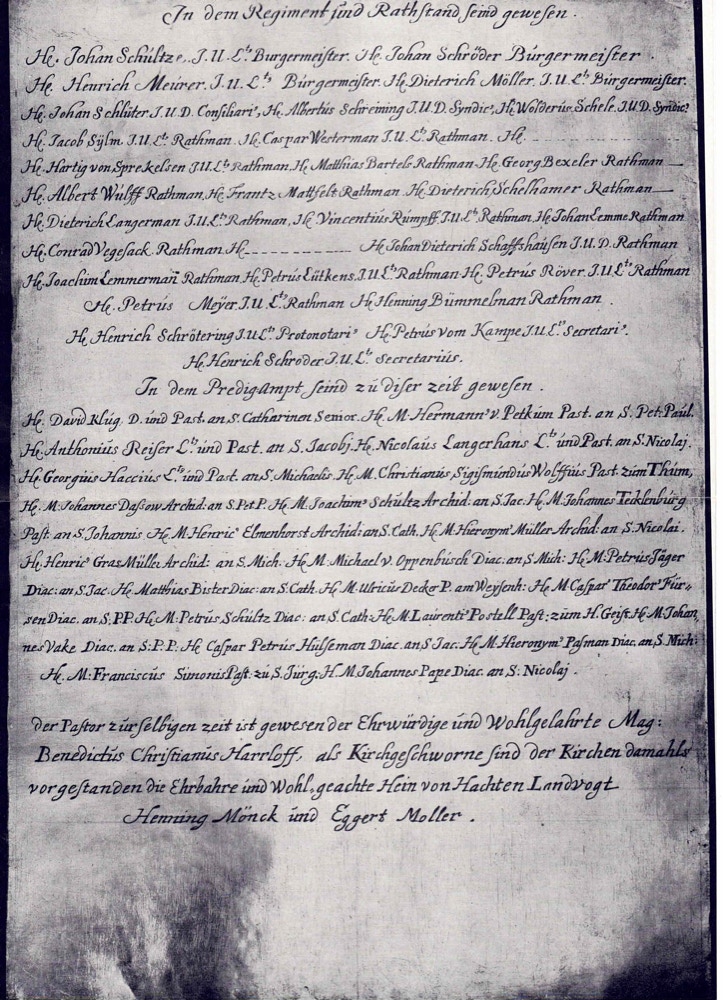 In dem Regiment und Rathstand seind gewesen.
He. Johan Schultze, J.U.Lts Burgermeister. He. Johan Schröder Bürgermeister
He. Henrich Meürer. J.U.Lts Bürgermeister. He. Dieterich Möller, J.U.Lts Bürgermeister.
He. Johan Schlüter J.U.D. Consiliari9, He. Albertus Schreining J.U.D. Syndic9, He. Wolderüs Schele. J.U.D. Syndic9
He. Jacob Sÿlm J.U.Lts Rathman. He. Caspar Westerman J.U.Lts Rathman. He.
He. Hartig von Sprekelsen J.U.Lts Rathman, He. Matthias Bartels Rathman. He. Georg Bexeler Rathman
He. Albert Wülff Rathman, He. Frantz Mattfelt Rathman. He. Dieterich Schelhamer Rathman
He. Dieterich Langerman J.U.Lts Rathman, He. Vincentiüs Rümpff J.U.Lts Rathman, He. Johan Lemme Rathman
He. Conrad Vegesack Rathman He. He. Johan Dieterich Schaffshaüsen J.U.D. Rathman
He. Joachim Lemmerman Rathman, He. Petrüs Lütkens. J.U.Lts Rathman. He. Petrüs Röver. J.U.Lts Rathman
He. Petrüs Meÿer J.U.Lts Rathman He. Henning Bümmelman Rathman.
He. Henrich Schrötering J.U.Lts Protonotari9 He. Petrüs vom Kampe J.U.Lts Secretari9.
He. Henrich Schroder J.U.Lts Secretariüs.
In dem Predigampt seind zü diser zeit gewesen.
He. David Klüg, D. und Past. an S. Catharinen Senior. He. M. Hermann9 v. Petküm Past. an S. Pet: Paul.
He. Anthoniüs Reiser Lts und Past. an S. Jacobj. He. Nicolaüs Langerhans Lts und Past. an S. Nicolaj.
He. Georgiüs Hacciüs Lts und Past. an S. Michaelis. He. M. Christianüs Sigismündüs Wolffiüs Past. zum Thüm,
He. M. Johannes Dassow Archid: an S. Pet P. He. M. Joachim9 Schültz Archid: an S. Jac: He. M. Johannes Tecklenbürg
Past. an S. Johannis. He. M. Henric9 Elmenhorst Archid: an S. Cath. He. M. Hieronym9 Müller Archid: an S. Nicolai.
He. Henric9 Gras Müller Archid: an S. Mich: He. M. Michael v. Oppenbüsch Diac. an S. Mich: He. M: Petrüs Jäger
Diac: an S. Jac. He. Matthias Bister Diac: an S. Cath. He. M. Ulricüs Decker P. am Weysenh: He. M. Caspar9 Theodor9 Für-
sen Diac. an S. P.P. He. M: Petrüs Schültz Diac: an S. Cath: He. M: Laürenti9 Postell Past: zum H. Geist. He. M. Johan,
nes Vake Diac. an S: P.P. He. Caspar Petrüs Hülseman Diac. an S Jac: He. M. Hieronym9 Pasman Diac. an, S. Mich:
He. M: Franciscüs Simonis Past. zü S. Jürg: H. M. Johannes Pape Diac. an S: Nicolaj.
der Pastor zür selbigen zeit ist gewesen der Ehrwürdige und Wohlgelahrte Mag:
Benedictüs Christianüs Harrloff, als Kirchgeschworne sind der Kirchen damahls
vorgestanden die Ehrbahre und Wohl,geachte Hein von Hachten Landvogt
Henning Mönck und Eggert Moller.